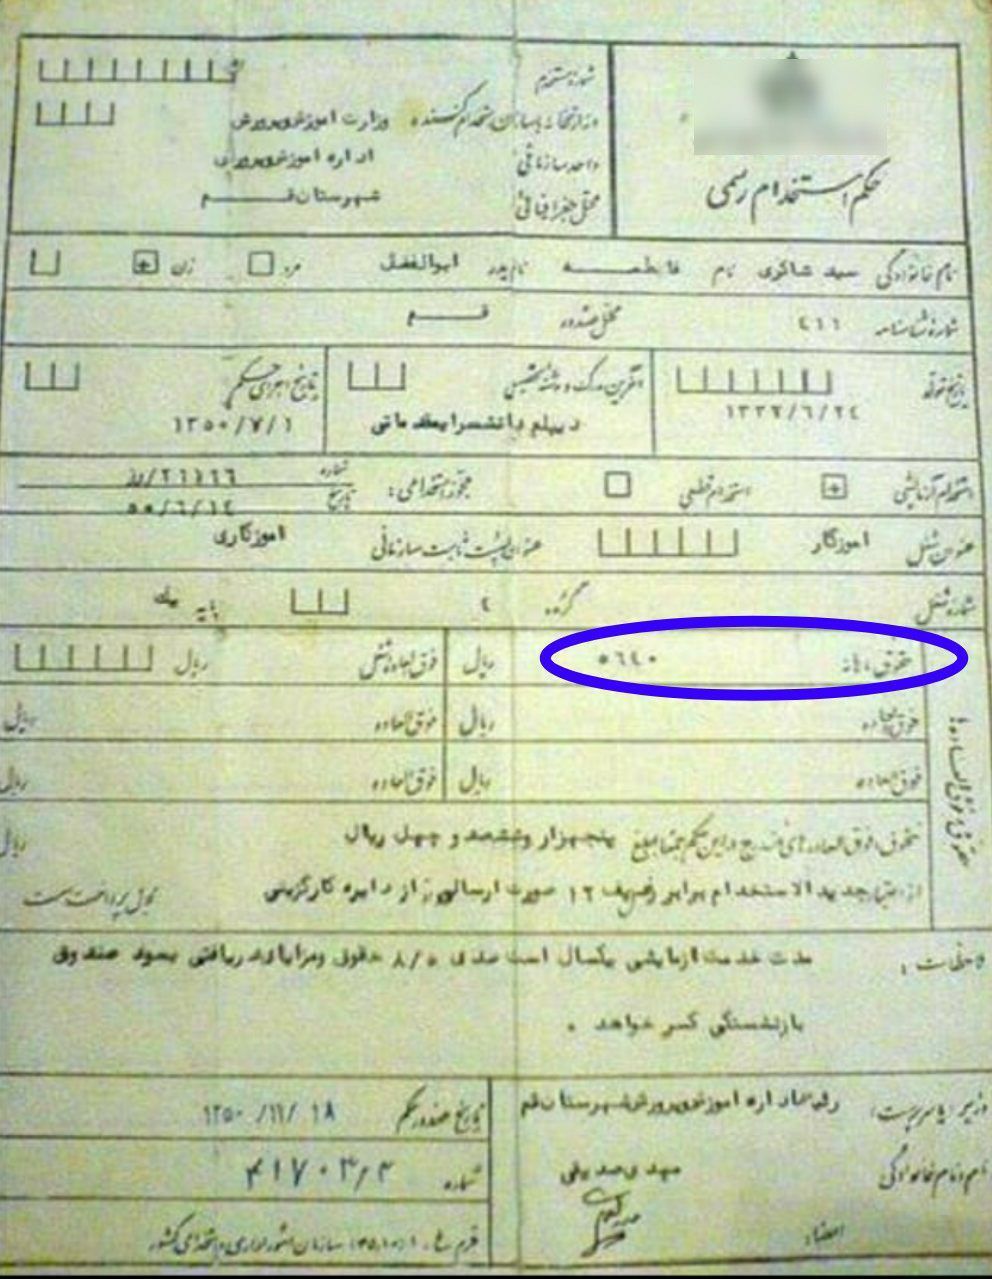 حکم استخدام رسمی
شماره مستخدم
وزارتخانه یا سازمان استخدام کننده وزارت آموزش و پرورش
واحد سازمانی اداره آموزش و پرورش
محل جغرافیائی شهرستان قم
نام خانوادگی سید شاکری نام فاطمه نام پدر ابوالفضل مرد زن
شماره شناسنامه ٤١١ محل صدور قم
تاریخ تولد
آخرین مدرک و رشته تحصیلی
تاریخ اجرای حکم
دیپلم دانشسرا
١٣٥٠/٧/١
استخدام آزمایشی استخدام قطعی مجوز استخدامی: شماره
تاریخ ٥٠/٦/١٤
عنوان شغل آموزگار عنوان پست ثابت سازمانی آموزگاری
شماره شغل گروه ٤ پایه یک
حقوق و فوق العاده ها
حقوق ماهانه ٥٦٤٠ ریال فوق العاده شغل ریال
فوق العاده ریال فوق العاده ریال
فوق العاده ریال فوق العاده ریال
حقوق و فوق العاده های مندرج در این حکم جمعا بمبلغ پنجهزار و ششصد و چهل ریال
از اعتبار جدید الاستخدام برابر ردیف ١٢ صورت ارسالی از دایره کارگزینی قابل پرداخت است
ملاحظات : مدت خدمت آزمایشی یکسال است صدی ٨/٥ حقوق و مزایای دریافتی بسود صندوق
بازنشستگی کسر خواهد .
وزیر (یا سرپرست) اداره آموزش و پرورش شهرستان قم
تاریخ صدور حکم ١٣٥٠ /١١/ ١٨
نام و نام خانوادگی مهدی صدیقی
شماره ٤١٧٠٣/٣
امضاء
سازمان امور اداری و استخدامی کشور